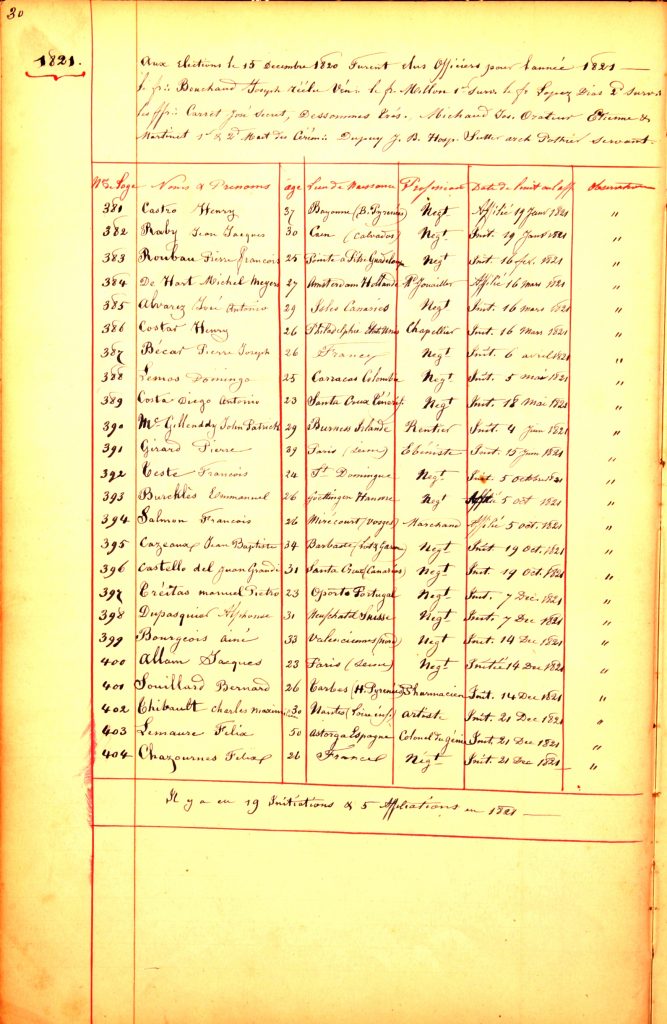 30
1821.
Aux Elections le 15 Decembre 1820 furent élus Officiers pour l'année 1821
le fr∴ Bouchaud Joseph Vén∴ le fr. Millon 1er Surv. le fr Lopez Dias 2d Surv.
les ffr∴ Carret José Secret, Dessommes Trés. Michaud Jos. Orateur Etienne &
Martinet 1er & 2d Mait des Cérém∴ Dupuy J. B. Hosp. Sutter arch Pothier servant
Nos de Loge Noms & Prenoms age Lieu de Naissance Profession Date de l'init. ou l'aff. Observation
381 Castro Henry 37 Bayonne (B. Pyrenées) Negt Affilié 19 Janv 1821 "
382 Raby Jean Jacques 30 Caen (Calvados) Negt Init. 19 Janv 1821 "
383 Roubau Pierre Francois 25 Pointe à Pitre Guadeloupe Negt Init. 16 fev. 1821 "
384 De Hart Michel Meyers 27 Amsterdam Hollande Md Jouailler Affilié 16 mars 1821 "
385 Alvarez José Antonio 29 Isles Canaries Negt Init. 16 mars 1821 "
386 Costar Henry 26 Philadelphie Etats Unis Chapellier Init. 16 Mars 1821 "
387 Bécar Pierre Joseph 26 France Negt Init. 6 avril 1821 "
388 Lemos Domingo 25 Carracas Colombie Negt Init. 5 mai 1821 "
389 Costa Diego Antonio 23 Santa Cruz Ténérif. Negt Init. 18 Mai 1821 "
390 Mc Gillenddy John Patrick 29 Burness Islande Rentier Init. 4 Juin 1821 "
391 Girard Pierre 39 Paris (Seine) Ebéniste Init. 15 Juin 1821 "
392 Teste Francois 24 St Domingue Negt Init. 5 octobre 1821 "
393 Burcklès Emmanuel 26 Gottingen Hanovre Negt Affilié 5 oct 1821 "
394 Salmon Francois 26 Mirécourt (Vosges) Marchand Affilié 5 oct. 1821 "
395 Cazeaux Jean Baptiste 34 Barbaste (Lot & Garon Negt Init 19 Oct. 1821 "
396 Castello del Juan Grandi 31 Santa Cruz (Canaries) Negt Init. 19 Oct. 1821 "
397 Créitas manuel Pietro 23 Oporto Portugal Negt Init. 7 Dec. 1821 "
398 Dupasquier Alphonse 31 Neufchatel Suisse Negt Init. 7 Dec 1821 "
399 Bourgeois ainé 33 Valenciennes (Nord) Negt Init. 14 Dec 1821 "
400 Allam Jacques 23 Paris (Seine) Negt Initié 14 Dec 1821 "
401 Souillard Bernard 26 Tarbes (H. Pyrenées) Pharmacien Init. 14 Dec 1821 "
402 Thibault Charles Maxim. 30 Nantes (Loire inf.) Artiste Init. 21 Dec 1821 "
403 Lemaure Felix 50 Astorga Espagne Colonel du génie Init. 21 Dec 1821 "
404 Chazournes Felix 26 France Négt Init. 21 Dec 1821 "
Il y a eu 19 Initiations & 5 Affiliations en 1821